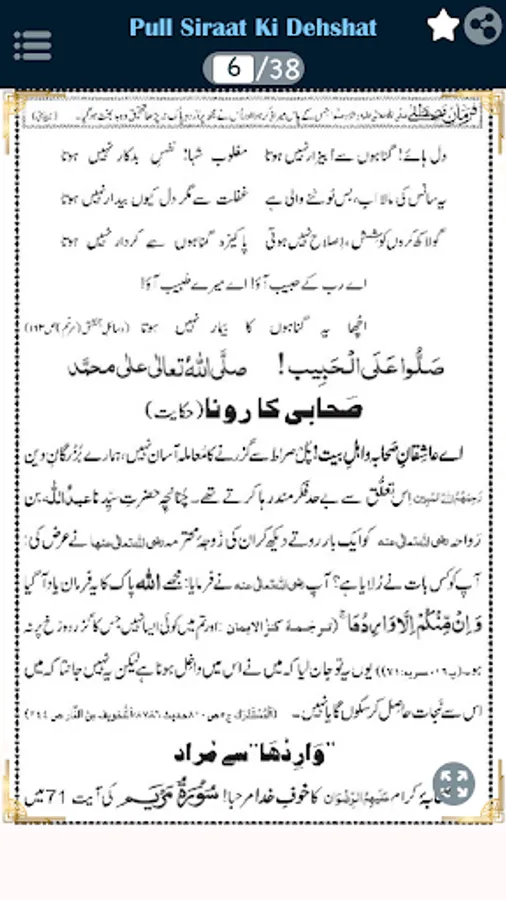 Pull Siraat Ki Dehshat
6/38
فرمانِ مصطفیٰ جس کے پاس میرا ذکر ہوا اور اُس نے مجھ پر دُرُودِ پاک نہ پڑھا تحقیق وہ بد بخت ہو گیا۔
دل ہائے! گناہوں سے بیزار نہیں ہوتا مغلوب شہا! نفسِ بدکار نہیں ہوتا
یہ سانس کی مالا اب، بس ٹوٹنے والی ہے غفلت سے مگر دل کیوں بیدار نہیں ہوتا
گو لاکھ کروں کوشش، اِصلاح نہیں ہوتی پاکیزہ گناہوں سے کردار نہیں ہوتا
اے رب کے حبیب آؤ! اے میرے طبیب آؤ!
اچھا یہ گناہوں کا بیمار نہیں ہوتا (وسائلِ بخشش (مرمّم) ص۱۶۳)
صَلُّوا عَلَی الْحَبِیب! صلَّی اللهُ تعالٰی علٰی محمَّد
صَحابی کا رونا (حکایت)
اے عاشقانِ صَحابہ و اہلِ بیت! پُل صراط سے گزرنے کا مُعاملہ آسان نہیں، ہمارے بُزُرگانِ دین
رَحِمَهُمُ اللهُ الْمُبِین اِس تعلُّق سے بے حد فکر مند رہا کرتے تھے۔ چُنانچِہ حضرتِ سیِّدنا عبدُ اللہ بن
رَواحہ رضی اللہ تعالٰی عنہ کو ایک بار روتے دیکھ کر ان کی زَوجۂ محترمہ رضی اللہ تعالٰی عنہا نے عرض کی:
آپ کو کس بات نے رُلایا ہے؟ آپ رضی اللہ تعالٰی عنہ نے فرمایا: مجھے اللہ پاک کا یہ فرمان یاد آ گیا
وَ اِنْ مِّنْكُمْ اِلَّا وَارِدُهَا ۚ (ترجَمۂ کنزُ الایمان: اور تم میں کوئی ایسا نہیں جس کا گزر دوزخ پر نہ
ہو۔ (پ۱۶، مریم:۷۱)) یوں یہ تو جان لیا کہ میں نے اس میں داخِل ہونا ہے لیکن یہ نہیں جانتا کہ میں
اس سے نَجات حاصِل کر سکوں گا یا نہیں۔
”وَارِدُهَا“ سے مُراد
کرام عَلَیْهِمُ الرِّضْوَان کا خوفِ خدا مرحبا! سُوْرَۂ مَرْیَم کی آیت 71 میں